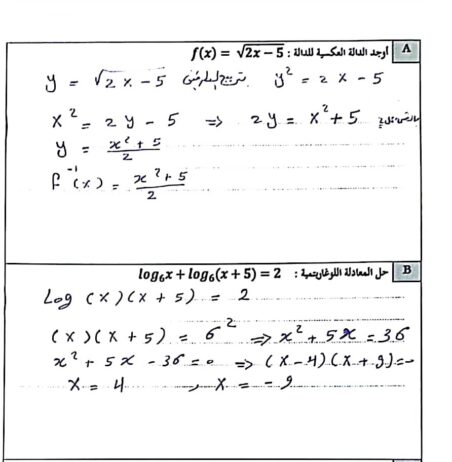 A أوجد الدالة العكسية للدالة : f(x) = √2x − 5
y = √2x − 5 بتربيع الطرفين y² = 2x − 5
x² = 2y − 5 ⇒ 2y = x² + 5
y = x² + 5 / 2
f⁻¹(x) = x² + 5 / 2
B حل المعادلة اللوغاريتمية : log₆x + log₆(x + 5) = 2
Log (x)(x + 5) = 2
(x)(x + 5) = 6² ⇒ x² + 5x = 36
x² + 5x − 36 = 0 ⇒ (x − 4)(x + 9) = 0
x = 4 , x = − 9